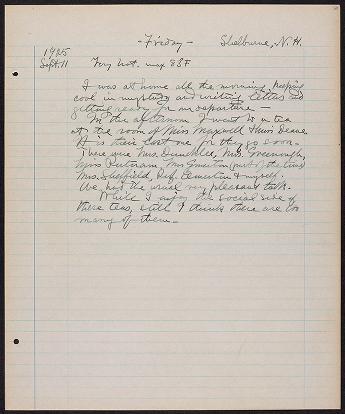 - Friday - Shelburne, N.H.
1925
Sept. 11 Very hot. max 88F
I was at home all the morning, keeping
cool in my study and writing letters and
getting ready for my departure -
In the afternoon I went to a tea
at the room of Miss Maxwell & Miss Deane
It is their last one for they go soon.
There were Mrs. Dunklee, Mrs. Greenough,
Miss Putnam, Mrs. (part of the time)
Mrs. Sheffield, Prof. & myself.
We had the usual very pleasant talk.
While I enjoy the social side of
these teas, still I think there are too
many of them -